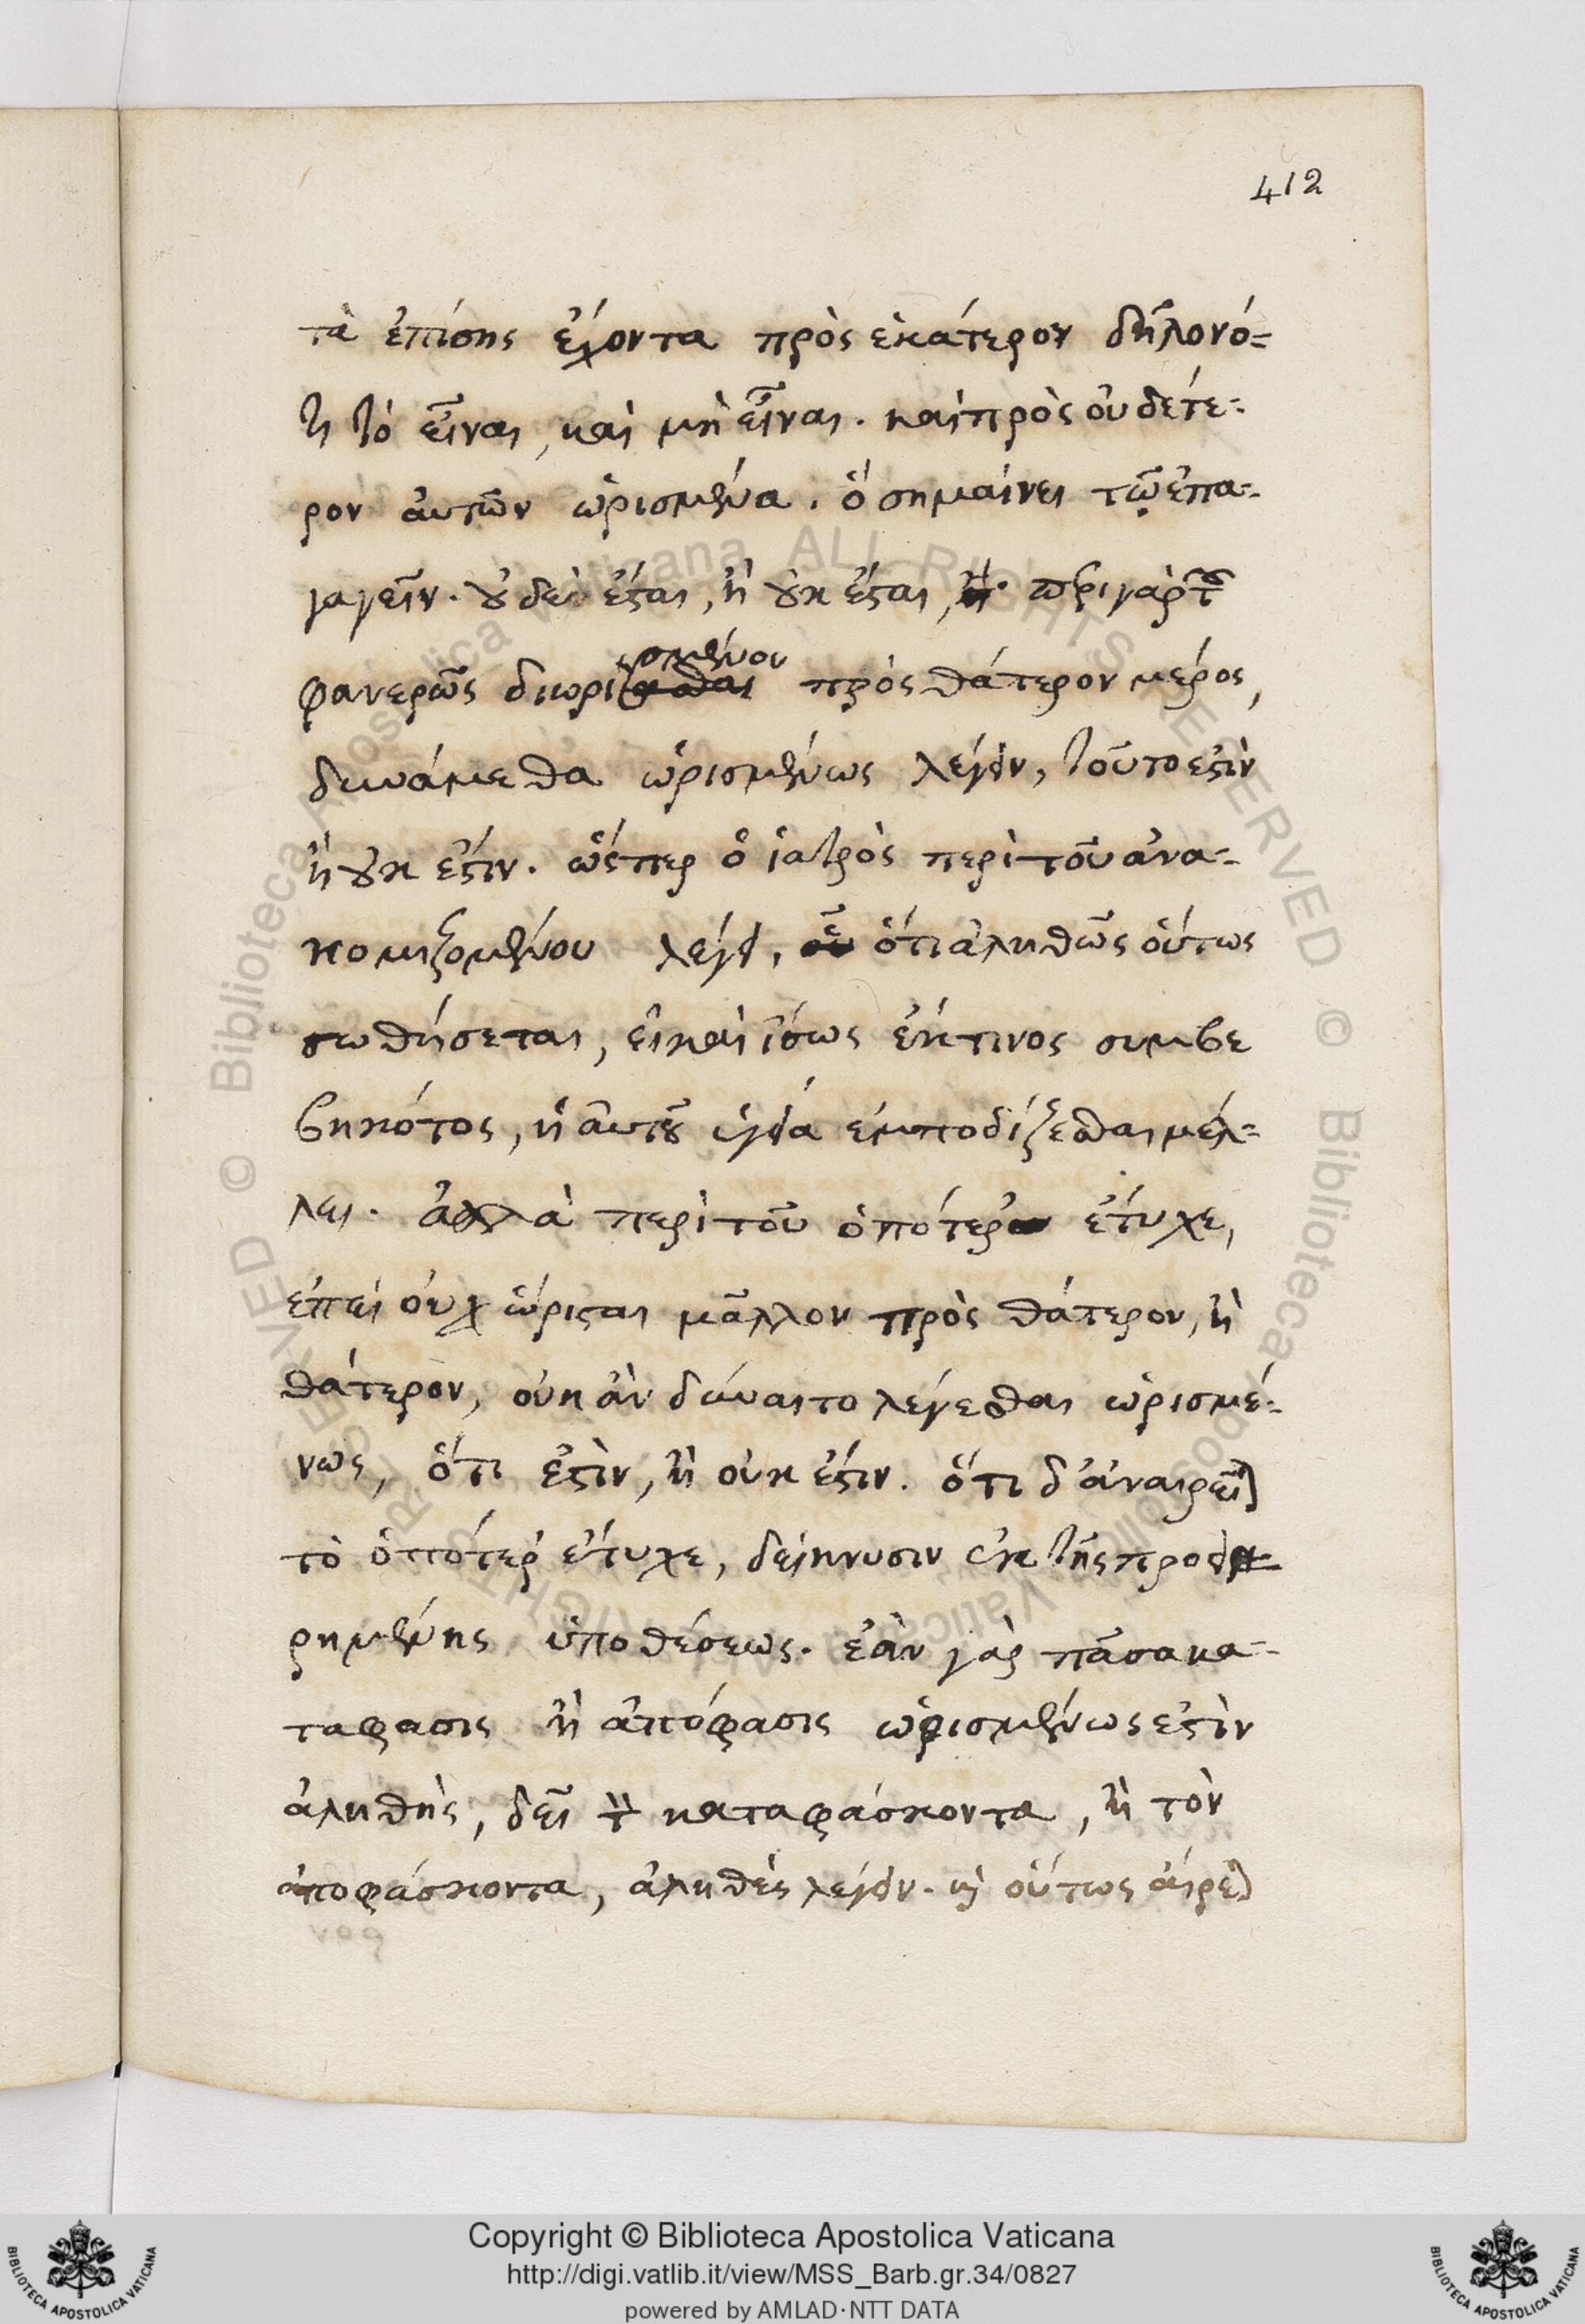 412
τὰ ἐπίσης ἔχοντα πρὸς ἑκάτερον δῆλονό-
τι τὸ εἶναι, καὶ μὴ εἶναι. καὶ πρὸς οὐδέτε-
ρον ἀυτῶν ὡρισμένα. ὃ σημαίνει τῷ ἐπα-
γαγεῖν. οὐδὲ ἔσται, ἢ οὐκ ἔσται, περὶ γὰρ τοῦ
φανερῶς διωρισμένου πρὸς θάτερον μέρος,
δυνάμεθα ὡρισμένως λέγειν, τοῦτο ἐστὶν
ἢ οὐκ ἔστιν. ὥσπερ ὁ ἰατρὸς περὶ τοῦ ἀνα-
κομιζομένου λέγει, ὅτι ἀληθῶς οὕτως
σωθήσεται, εἰ καὶ ἴσως ἔκ τινος συμβε
βηκότος, ἡ ἀυτοῦ ὑγεία ἐμποδίζεσθαι μέλ-
λει. ἀλλὰ περὶ τοῦ ὁπότερ ἔτυχε,
ἐπεὶ οὐχ ὥρισται μᾶλλον πρὸς θάτερον, ἢ
θάτερον, οὐκ ἂν δύναιτο λέγεσθαι ὡρισμέ-
νως, ὅτι ἐστὶν, ἢ οὐκ ἔστιν. ὅτι δ' ἀναιρεῖται
τὸ ὁπότερ ἔτυχε, δείκνυσιν ἐκ τῆς προει-
ρημένης ὑποθέσεως. ἐὰν γὰρ πᾶσα κα-
ταφασις ἢ ἀπόφασις ὡρισμένως ἐστὶν
ἀληθὴς, δεῖ ἢ τὸν καταφάσκοντα, ἢ τὸν
ἀποφάσκοντα, ἀληθὲς λέγειν. καὶ οὕτως ἀιρεῖται
Copyright © Biblioteca Apostolica Vaticana
http://digi.vatlib.it/view/MSS_Barb.gr.34/0827
powered by AMLAD·NTT DATA